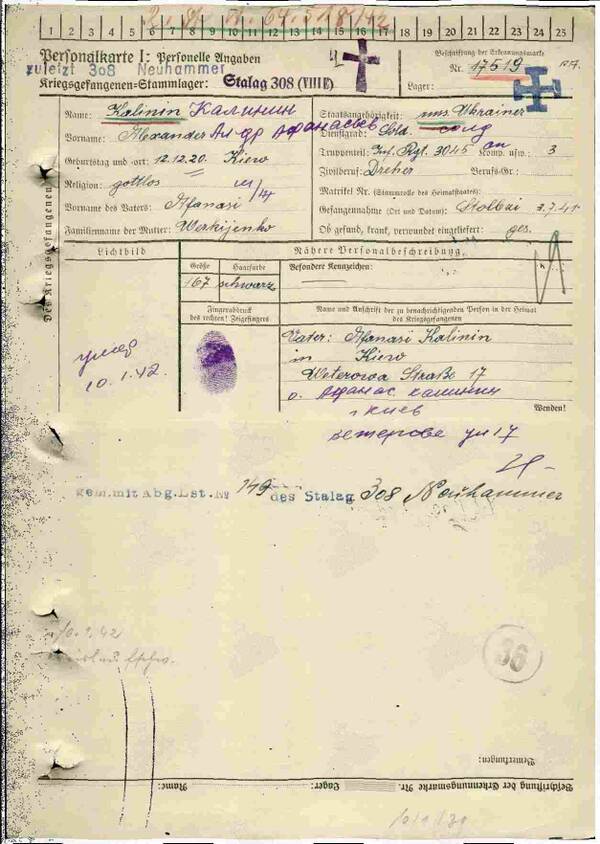 1 2 3 4 5 6 7 8 9 10 11 12 13 14 15 16 17 18 19 20 21 22 23 24 25
Personalkarte I: Personelle Angaben
Beschriftung der Erkennungsmarke
zuletzt 308 Neuhammer
Nr. 17519
Kriegsgefangenen=Stammlager: Stalag 308 (VIII E)
Lager:
Des Kriegsgefangenen
Name: Kalinin Калинин
Staatsangehörigkeit: Ukrainer
Vorname: Alexander Ал-др Афанасьев
Dienstgrad: Sold. солд
Truppenteil: Inf. Rgt. 3045 Komp. usw.: 3
Geburtstag und -ort: 12.12.20. Kiew
Zivilberuf: Dreher Berufs-Gr.:
Religion: gottlos
Matrikel Nr. (Stammrolle des Heimatstaates):
Vorname des Vaters: Afanasi
Gefangennahme (Ort und Datum): Stolbzi 3.7.41
Familienname der Mutter: Werkijenko
Ob gesund, krank, verwundet eingeliefert: ges.
Lichtbild
Nähere Personalbeschreibung
Größe Haarfarbe
Besondere Kennzeichen:
167 schwarz
Fingerabdruck
des rechten! Zeigefingers
Name und Anschrift der zu benachrichtigenden Person in der Heimat
des Kriegsgefangenen
Vater: Afanasi Kalinin
in
Kiew
Weterowa Straße 17
умер
10.1.42
о. Афанас Калинин
г Киев
Wenden!
ветерове ул 17
gem. mit Abg.Lst.№ 149 des Stalag 308 Neuhammer
10.1.42
36
Bemerkungen:
Beschriftung der Erkennungsmarke Nr.
Lager:
Name: